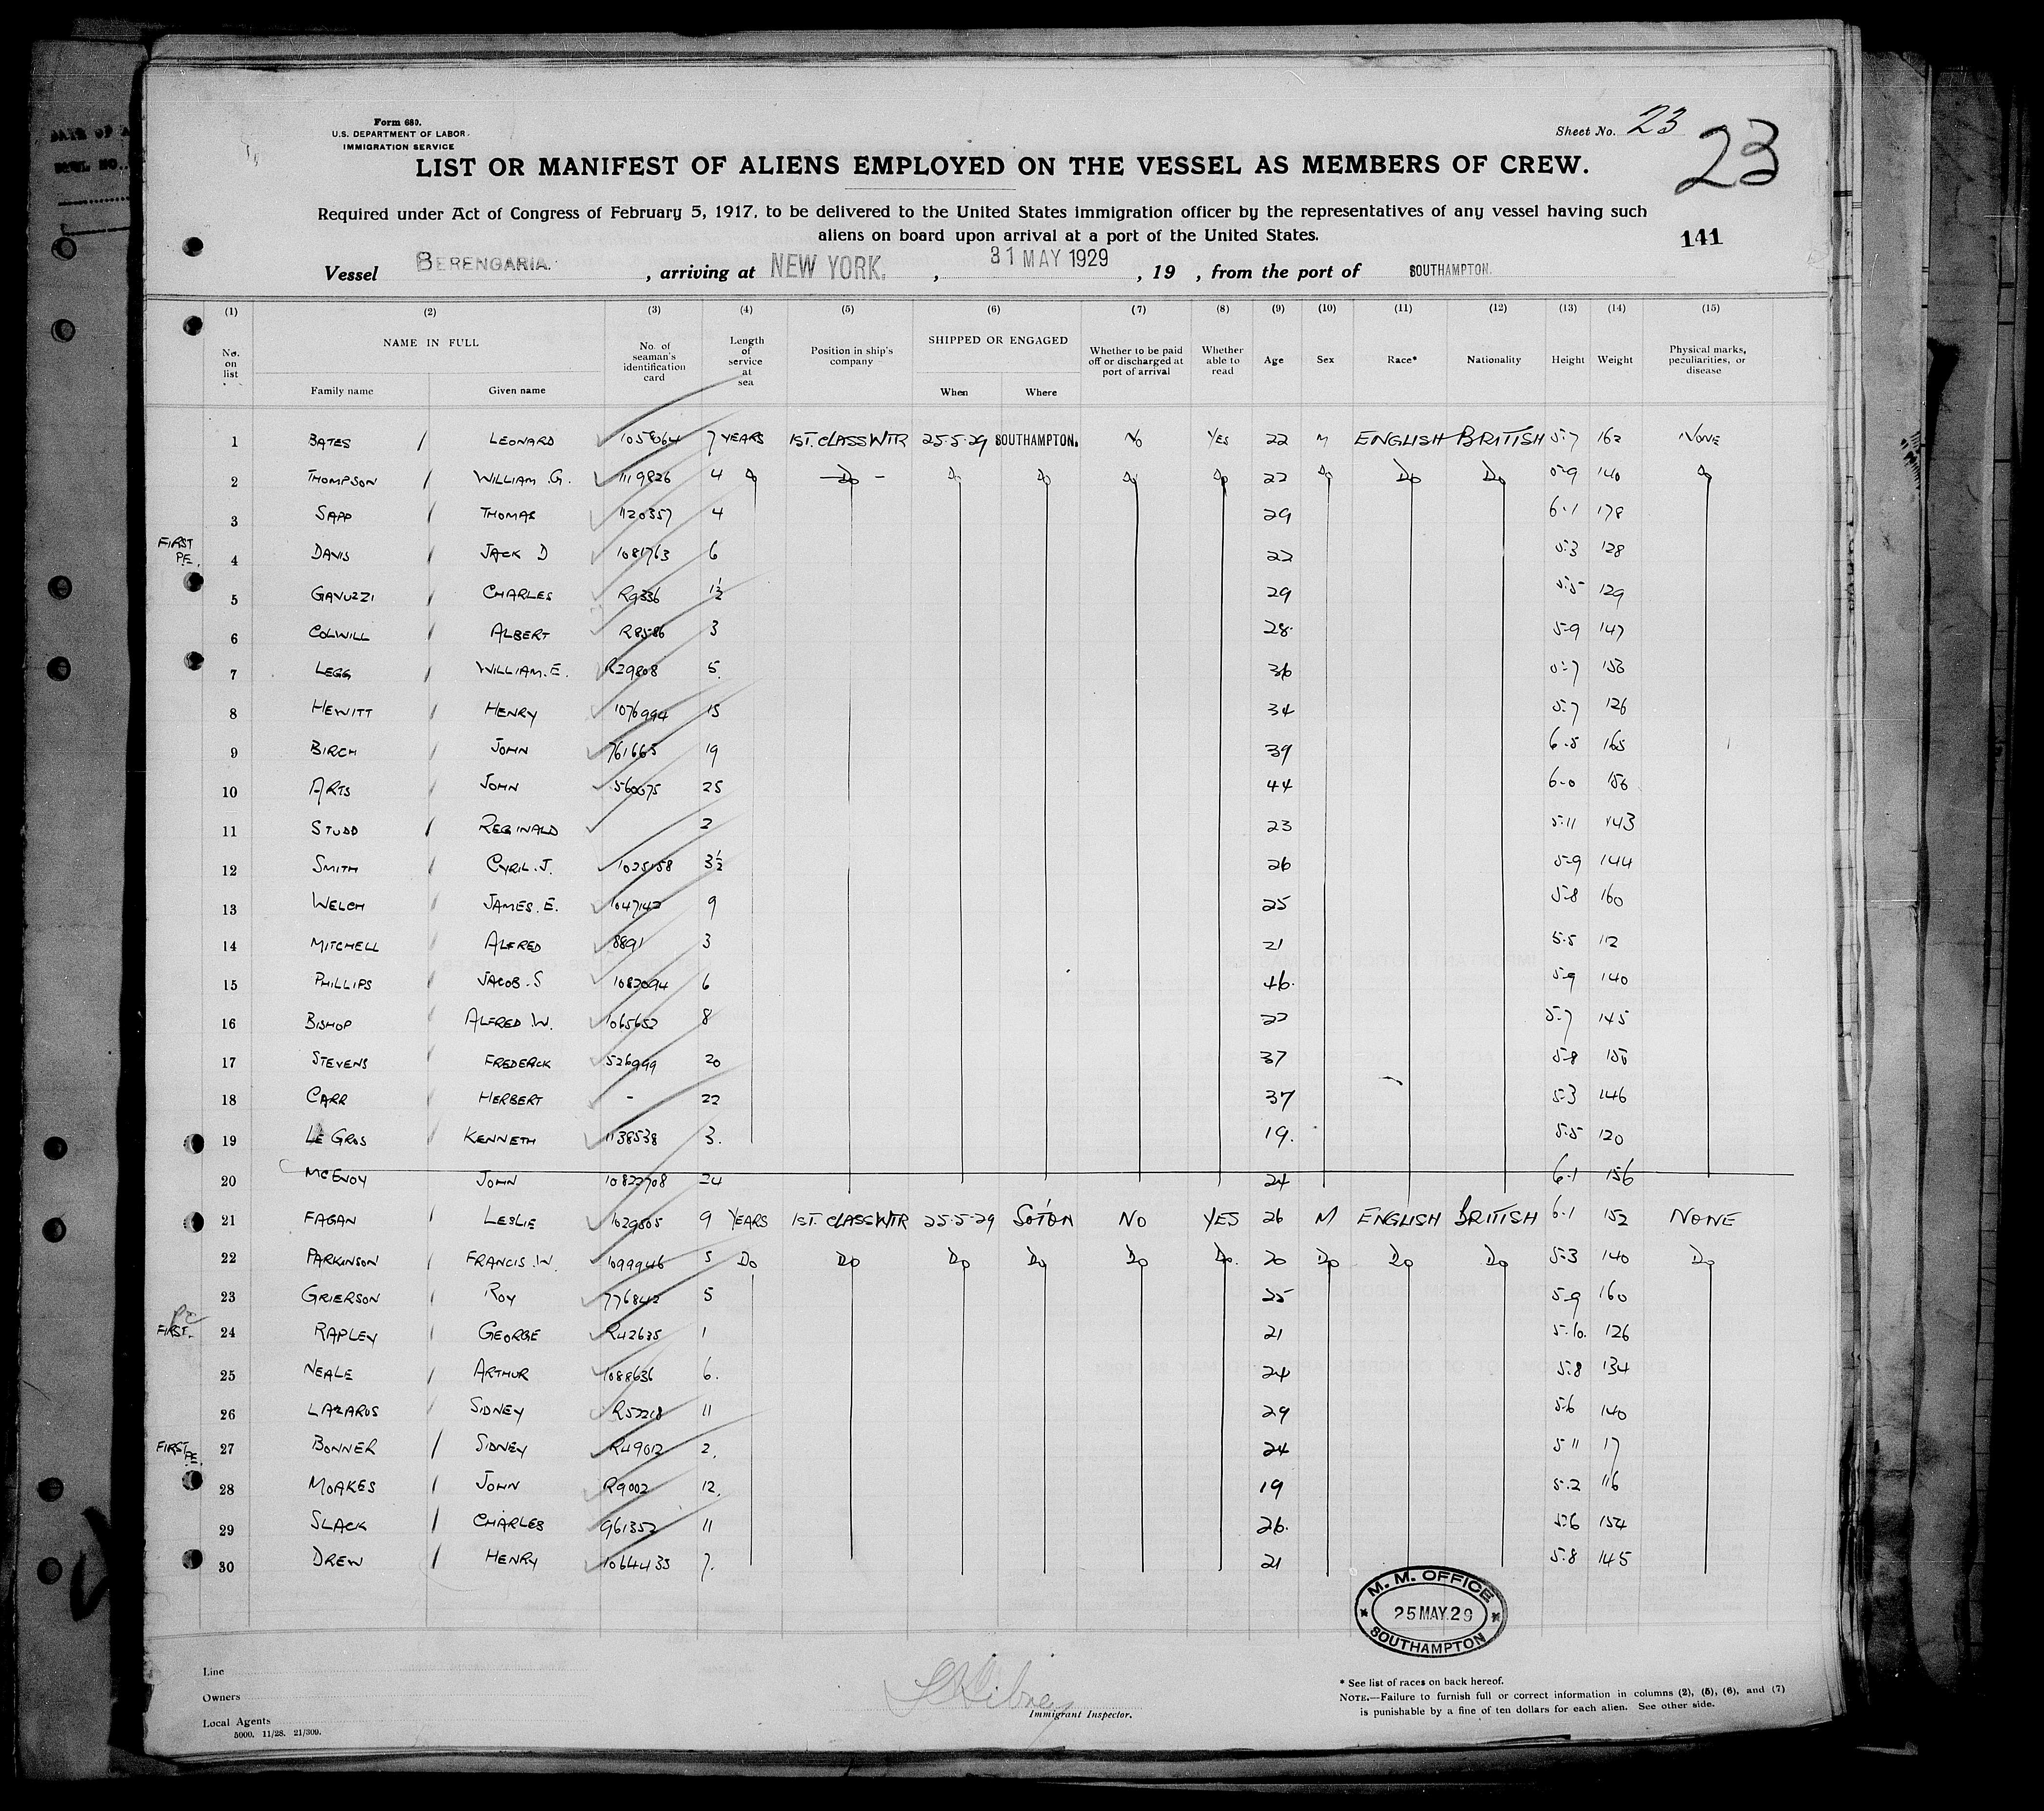 Form 680.
U.S. DEPARTMENT OF LABOR
IMMIGRATION SERVICE
Sheet No. 23
23
LIST OR MANIFEST OF ALIENS EMPLOYED ON THE VESSEL AS MEMBERS OF CREW.
Required under Act of Congress of February 5, 1917, to be delivered to the United States immigration officer by the representatives of any vessel having such
aliens on board upon arrival at a port of the United States.
141
Vessel BERENGARIA. , arriving at NEW YORK. , 31 MAY 1929 , 19 , from the port of SOUTHAMPTON.
(1) (2) (3) (4) (5) (6) (7) (8) (9) (10) (11) (12) (13) (14) (15)
No. on list NAME IN FULL Family name Given name No. of seaman's identification card Length of service at sea Position in ship's company SHIPPED OR ENGAGED When Where Whether to be paid off or discharged at port of arrival Whether able to read Age Sex Race* Nationality Height Weight Physical marks, peculiarities, or disease
1 BATES LEONARD 7 YEARS 1ST. CLASS WTR 25.5.29 SOUTHAMPTON. NO YES 22 M ENGLISH BRITISH 5.7 162 NONE
2 THOMPSON WILLIAM .G. 1119826 4 Do -Do- Do Do Do Do 22 Do Do Do 5-9 140 Do
3 SAPP THOMAS 1120357 4 29 6.1 178
FIRST P.E. 4 DAVIS JACK D 1081763 6 22 5.3 128
5 GAVUZZI CHARLES R9336 1½ 29 5.5 129
6 COLWILL ALBERT R8586 3 28. 5-9 147
7 LEGG WILLIAM.E. R29808 5. 36 5.7
8 HEWITT HENRY 1076994 15 34 5.7 126
9 BIRCH JOHN 761663 19 39 6.5 165
10 ARTS JOHN 560675 25 44 6-0
11 STUDD REGINALD 2 23 5.11 143
12 SMITH CYRIL.J. 1025158 3½ 26 5-9 144
13 WELCH JAMES.E. 1047142 9 25 5.8 160
14 MITCHELL ALFRED 8891 3 21 5.5 112
15 PHILLIPS JACOB.S 1082094 6 46. 5-9 140
16 BISHOP ALFRED .W. 1065652 8 22 5.7 145
17 STEVENS FREDERICK 526999 20 37 5.8
18 CARR HERBERT - 22 37 5.3 146
19 LE GROS KENNETH 1138538 3. 19. 5.5 120
20 MCEVOY JOHN 24 24 6.1 156
21 FAGAN LESLIE 1029505 9 YEARS 1ST. CLASS WTR 25.5.29 SO'TON NO YES 26 M ENGLISH BRITISH 6.1 152 NONE
22 PARKINSON FRANCIS.W. 1099946 5 Do Do Do Do Do Do. 20 Do Do Do 5.3 140 Do
23 GRIERSON ROY 776842 5 25 5-9 160
PE FIRST. 24 RAPLEY GEORGE R42635 1 21 5.10. 126
25 NEALE ARTHUR 1088636 6. 24 5.8 134
26 LAZARUS SIDNEY R52218 11 29 5.6 140
FIRST P.E. 27 BONNER SIDNEY R49012 2. 24 5 11 17
28 MOAKES JOHN R9002 12. 19 5.2 116
29 SLACK CHARLES 961352 11 26. 5.6 154
30 DREW HENRY 1064435 7. 21 5.8 145
M. M. OFFICE
25 MAY. 29
SOUTHAMPTON
Line
Owners
Local Agents
5000. 11/28. 21/300.
Immigrant Inspector.
* See list of races on back hereof.
NOTE.—Failure to furnish full or correct information in columns (2), (5), (6), and (7)
is punishable by a fine of ten dollars for each alien. See other side.